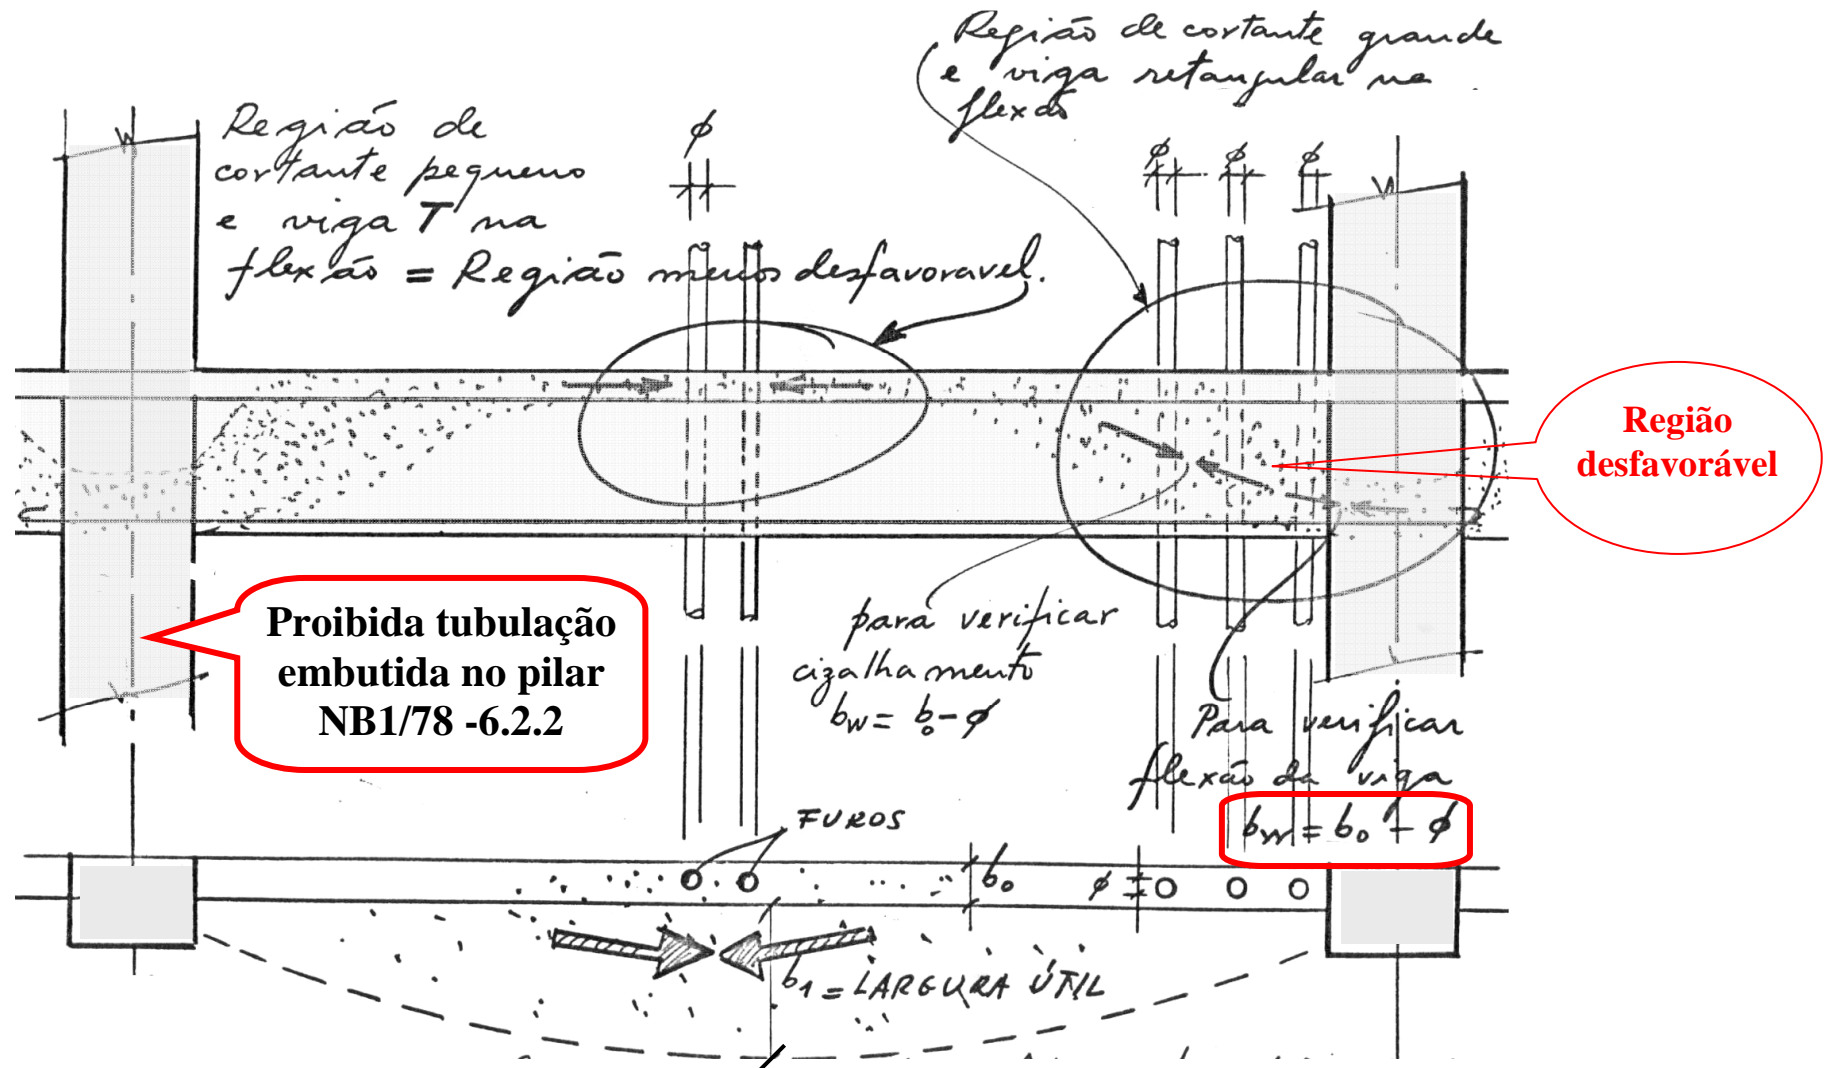 Região de cortante grande
e viga retangular na
flexão
Região de
cortante pequeno
e viga T na
flexão = Região menos desfavoravel.
ϕ
ϕ ϕ ϕ
Região
desfavorável
Proibida tubulação
embutida no pilar
NB1/78 -6.2.2
para verificar
cizalhamento
bw = b₀ - ϕ
Para verificar
flexão da viga
bw = b₀ - ϕ
FUROS
b₀
ϕ
b₁ = LARGURA ÚTIL